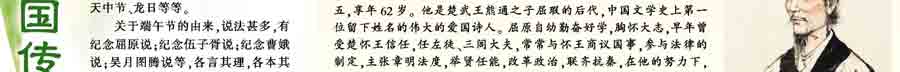 国传
天中节、龙日等等。
关于端午节的由来,说法甚多,有
纪念屈原说;纪念伍子胥说;纪念曹娥
说;吴月图腾说等,各言其理,各本其
五,享年62岁。他是楚武王熊通之子屈瑕的后代,中国文学史上第一
位留下姓名的伟大的爱国诗人。屈原自幼勤奋好学,胸怀大志,早年曾
受楚怀王信任,任左徒、三闾大夫,常常与怀王商议国事,参与法律的
制定,主张章明法度,举贤任能,改革政治,联齐抗秦,在他的努力下,